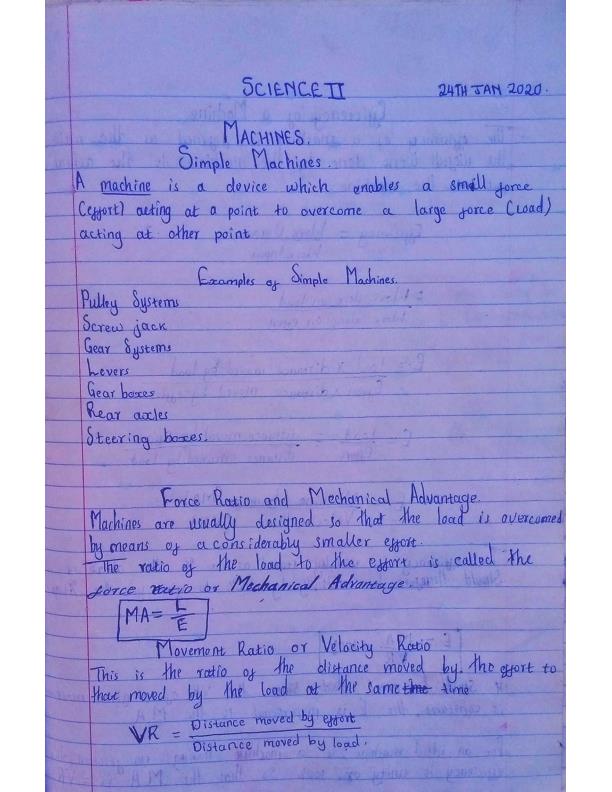 SCIENCE II 24TH JAN 2020.
MACHINES.
Simple Machines.
A machine is a device which enables a small force
(effort) acting at a point to overcome a large force (Load)
acting at other point
Examples of Simple Machines.
Pulley Systems
Screw jack
Gear Systems
Levers
Gear boxes
Rear axles
Steering boxes.
Force Ratio and Mechanical Advantage.
Machines are usually designed so that the load is overcomed
by means of a considerably smaller effort.
The ratio of the load to the effort is called the
force ratio or Mechanical Advantage
MA = L/E
Movement Ratio or Velocity Ratio
This is the ratio of the distance moved by the effort to
that moved by the load at the same time time
VR = Distance moved by effort
Distance moved by load.